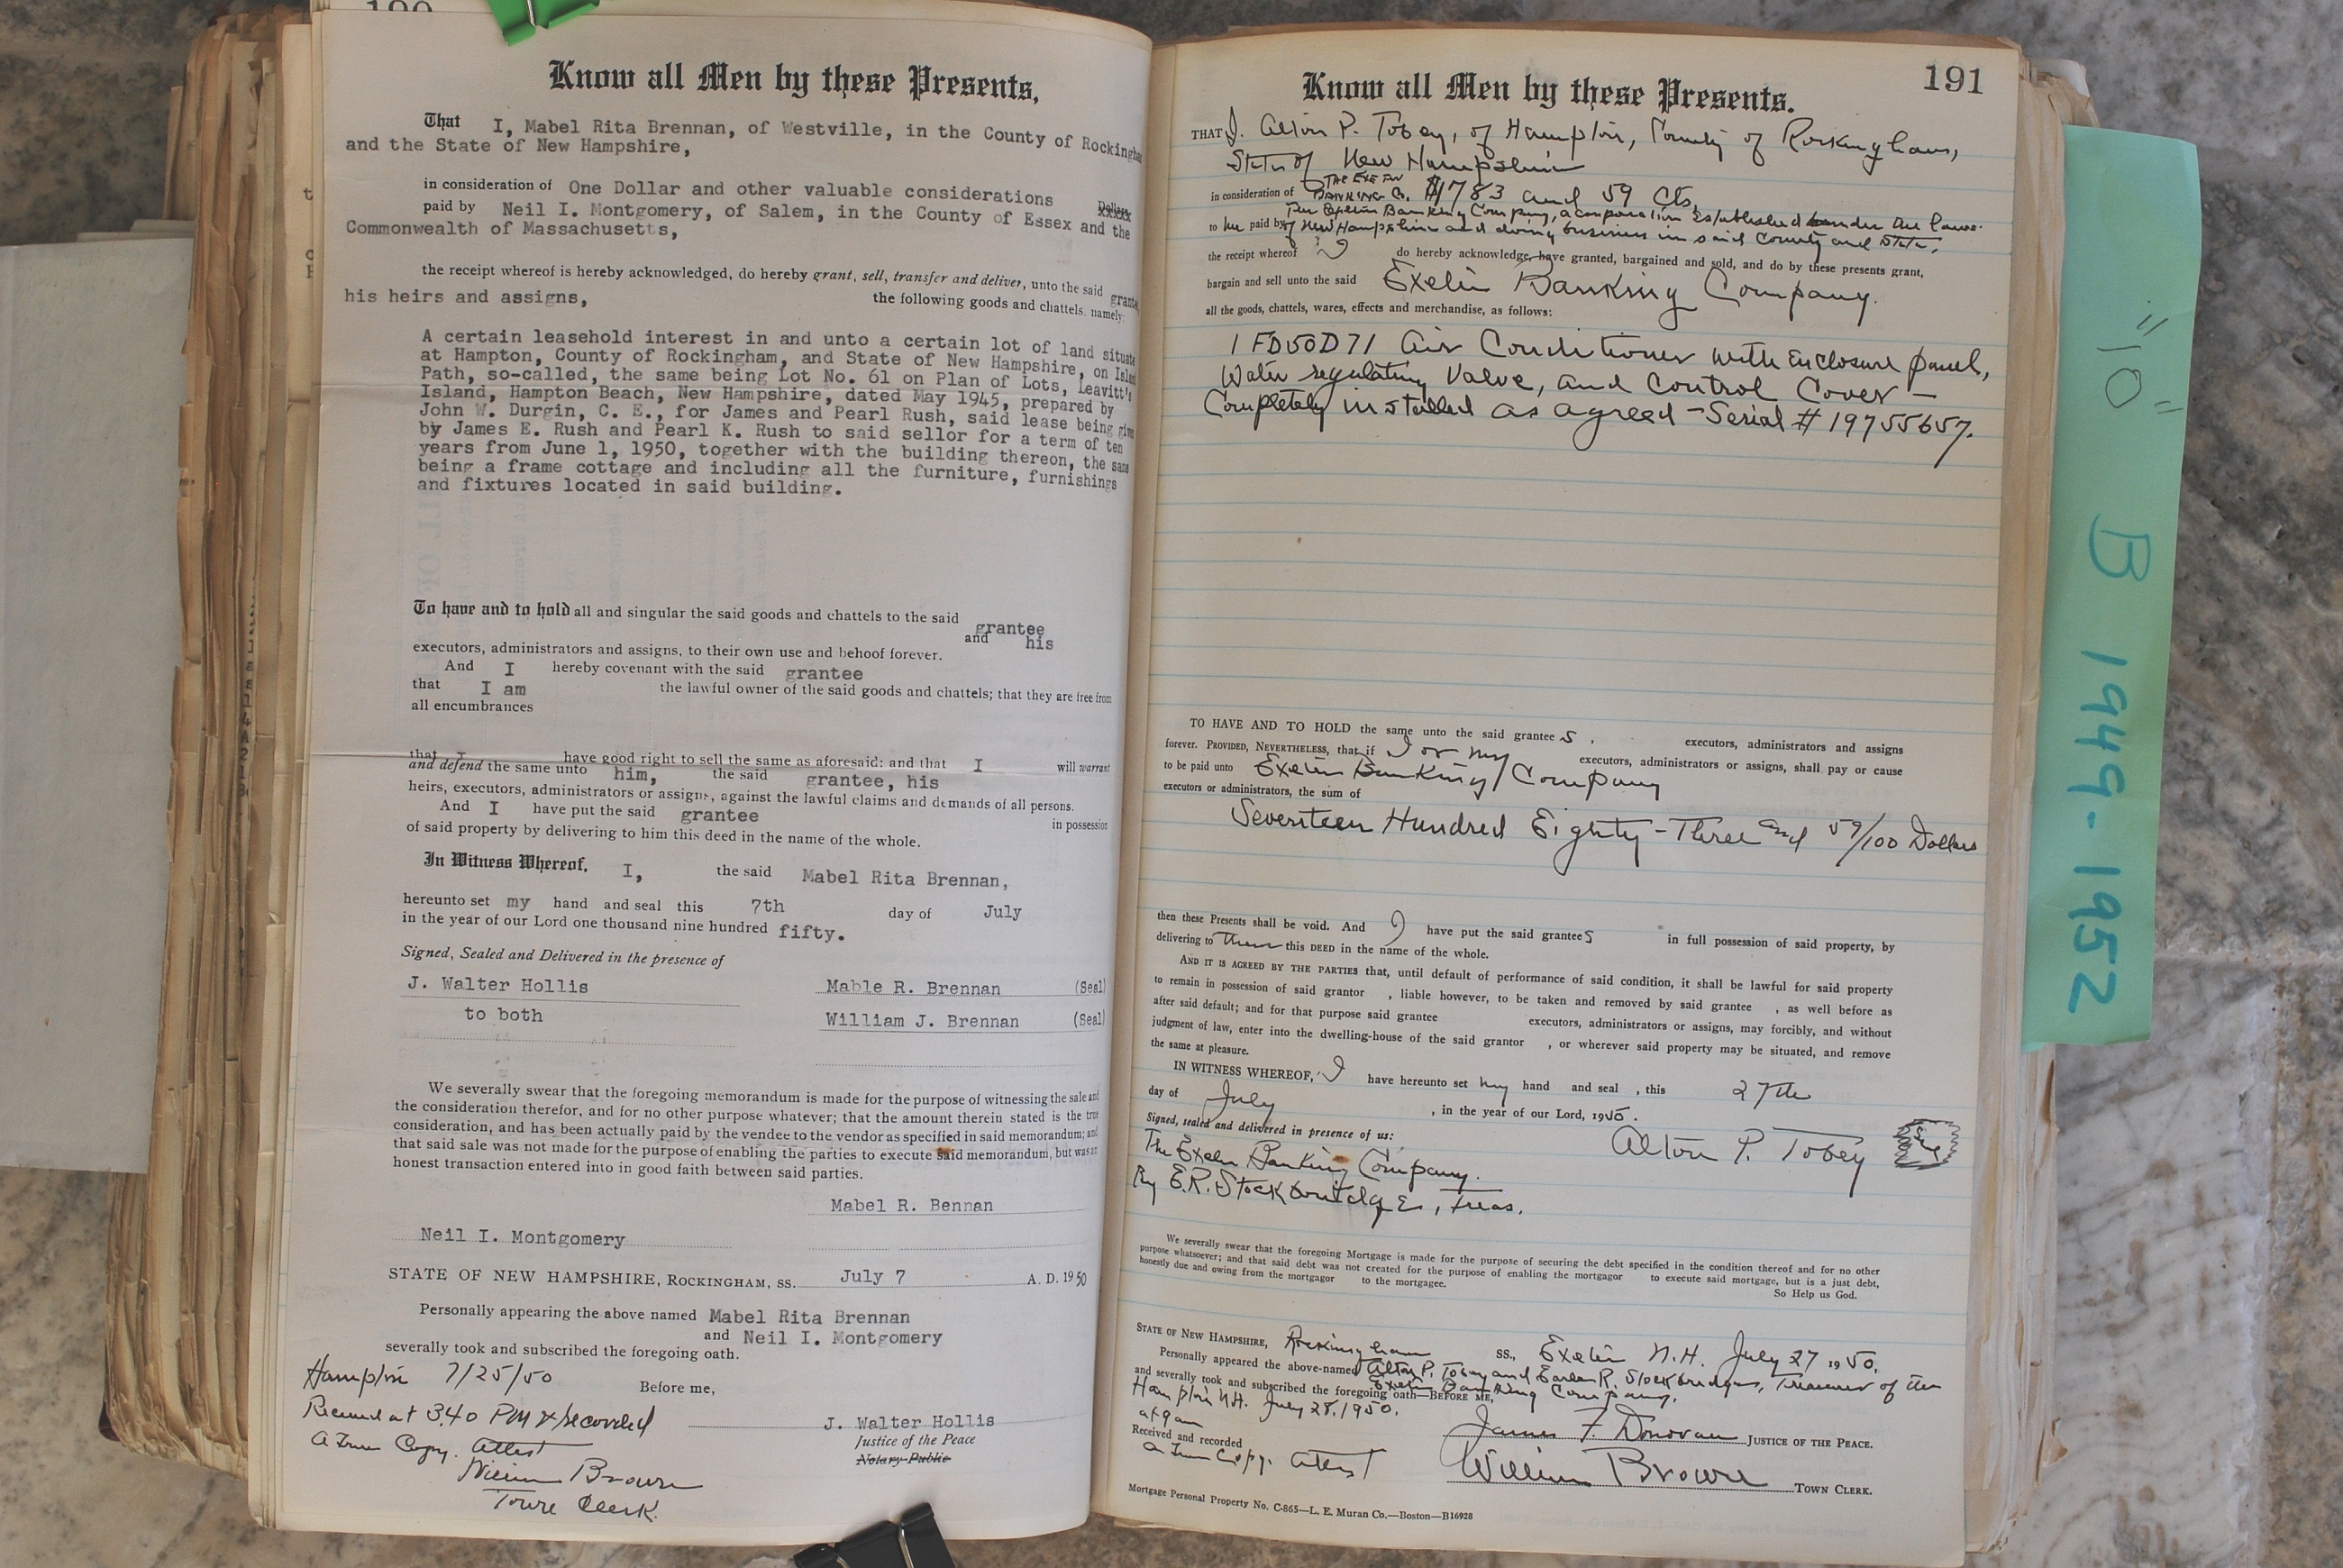 Know all Men by these Presents,
That I, Mabel Rita Brennan, of Westville, in the County of Rockingham
and the State of New Hampshire,
in consideration of One Dollar and other valuable considerations Dollars
paid by Neil I. Montgomery, of Salem, in the County of Essex and the
Commonwealth of Massachusetts,
the receipt whereof is hereby acknowledged, do hereby grant, sell, transfer and deliver, unto the said grantee
his heirs and assigns, the following goods and chattels, namely:
A certain leasehold interest in and unto a certain lot of land situate
at Hampton, County of Rockingham, and State of New Hampshire, on Island
Path, so-called, the same being Lot No. 61 on Plan of Lots, Leavitt's
Island, Hampton Beach, New Hampshire, dated May 1945, prepared by
John W. Durgin, C. E., for James and Pearl Rush, said lease being given
by James E. Rush and Pearl K. Rush to said sellor for a term of ten
years from June 1, 1950, together with the building thereon, the same
being a frame cottage and including all the furniture, furnishings
and fixtures located in said building.
To have and to hold all and singular the said goods and chattels to the said grantee
and his
executors, administrators and assigns, to their own use and behoof forever.
And I hereby covenant with the said grantee
that I am the lawful owner of the said goods and chattels; that they are free from
all encumbrances
that I have good right to sell the same as aforesaid: and that I will warrant
and defend the same unto him, the said grantee, his
heirs, executors, administrators or assigns, against the lawful claims and demands of all persons.
And I have put the said grantee in possession
of said property by delivering to him this deed in the name of the whole.
In Witness Whereof, I, the said Mabel Rita Brennan,
hereunto set my hand and seal this 7th day of July
in the year of our Lord one thousand nine hundred fifty.
Signed, Sealed and Delivered in the presence of
J. Walter Hollis Mable R. Brennan (Seal)
to both William J. Brennan (Seal)
We severally swear that the foregoing memorandum is made for the purpose of witnessing the sale and
the consideration therefor, and for no other purpose whatever; that the amount therein stated is the true
consideration, and has been actually paid by the vendee to the vendor as specified in said memorandum; and
that said sale was not made for the purpose of enabling the parties to execute said memorandum, but was an
honest transaction entered into in good faith between said parties.
Mabel R. Bennan
Neil I. Montgomery
STATE OF NEW HAMPSHIRE, ROCKINGHAM, SS. July 7 A. D. 1950
Personally appearing the above named Mabel Rita Brennan
and Neil I. Montgomery
severally took and subscribed the foregoing oath.
Hampton 7/25/50 Before me,
Received at 3.40 PM & recorded
J. Walter Hollis
A True Copy. Attest Justice of the Peace
Notary Public
William Brown
Town Clerk.
191
Know all Men by these Presents.
THAT I, Alton P. Tobey, of Hampton, County of Rockingham,
State of New Hampshire
in consideration of THE EXETER BANKING Co. $1783 and 59 Cts.
to me paid by The Exeter Banking Company, a corporation established under the laws
of New Hampshire and doing business in said County and State,
the receipt whereof I do hereby acknowledge, have granted, bargained and sold, and do by these presents grant,
bargain and sell unto the said Exeter Banking Company.
all the goods, chattels, wares, effects and merchandise, as follows:
1 FD50D71 Air Conditioner with Enclosure panel,
Water regulating Valve, and Control Cover —
Completely installed as agreed — Serial # 19755657.
TO HAVE AND TO HOLD the same unto the said grantee s, executors, administrators and assigns
forever. PROVIDED, NEVERTHELESS, that if I or my executors, administrators or assigns, shall pay or cause
to be paid unto Exeter Banking Company
executors or administrators, the sum of
Seventeen Hundred Eighty-Three and 59/100 Dollars
then these Presents shall be void. And I have put the said grantee s in full possession of said property, by
delivering to them this DEED in the name of the whole.
AND IT IS AGREED BY THE PARTIES that, until default of performance of said condition, it shall be lawful for said property
to remain in possession of said grantor , liable however, to be taken and removed by said grantee , as well before as
after said default; and for that purpose said grantee executors, administrators or assigns, may forcibly, and without
judgment of law, enter into the dwelling-house of the said grantor , or wherever said property may be situated, and remove
the same at pleasure.
IN WITNESS WHEREOF, I have hereunto set my hand and seal , this 27th
day of July , in the year of our Lord, 1950.
Signed, sealed and delivered in presence of us:
Alton P. Tobey Seal
The Exeter Banking Company.
By E.R. Stockbridge, Treas.
We severally swear that the foregoing Mortgage is made for the purpose of securing the debt specified in the condition thereof and for no other
purpose whatsoever; and that said debt was not created for the purpose of enabling the mortgagor to execute said mortgage, but is a just debt,
honestly due and owing from the mortgagor to the mortgagee.
So Help us God.
STATE OF NEW HAMPSHIRE, Rockingham SS., Exeter N.H. July 27 1950.
Personally appeared the above-named Alton P. Tobey and Earle R. Stockbridge, Treasurer of the
Exeter Banking Company.
and severally took and subscribed the foregoing oath—BEFORE ME,
Hampton N.H. July 28, 1950.
at 9 am
James F Donovan JUSTICE OF THE PEACE.
Received and recorded
A True Copy. Attest
William Brown TOWN CLERK.
Mortgage Personal Property No. C-865—L. E. Muran Co.—Boston—B16928
"10" B 1949-1952